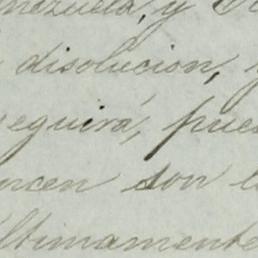 nezuela, y
disolucion,
eguirá, pues
ercen son l
ltimamente